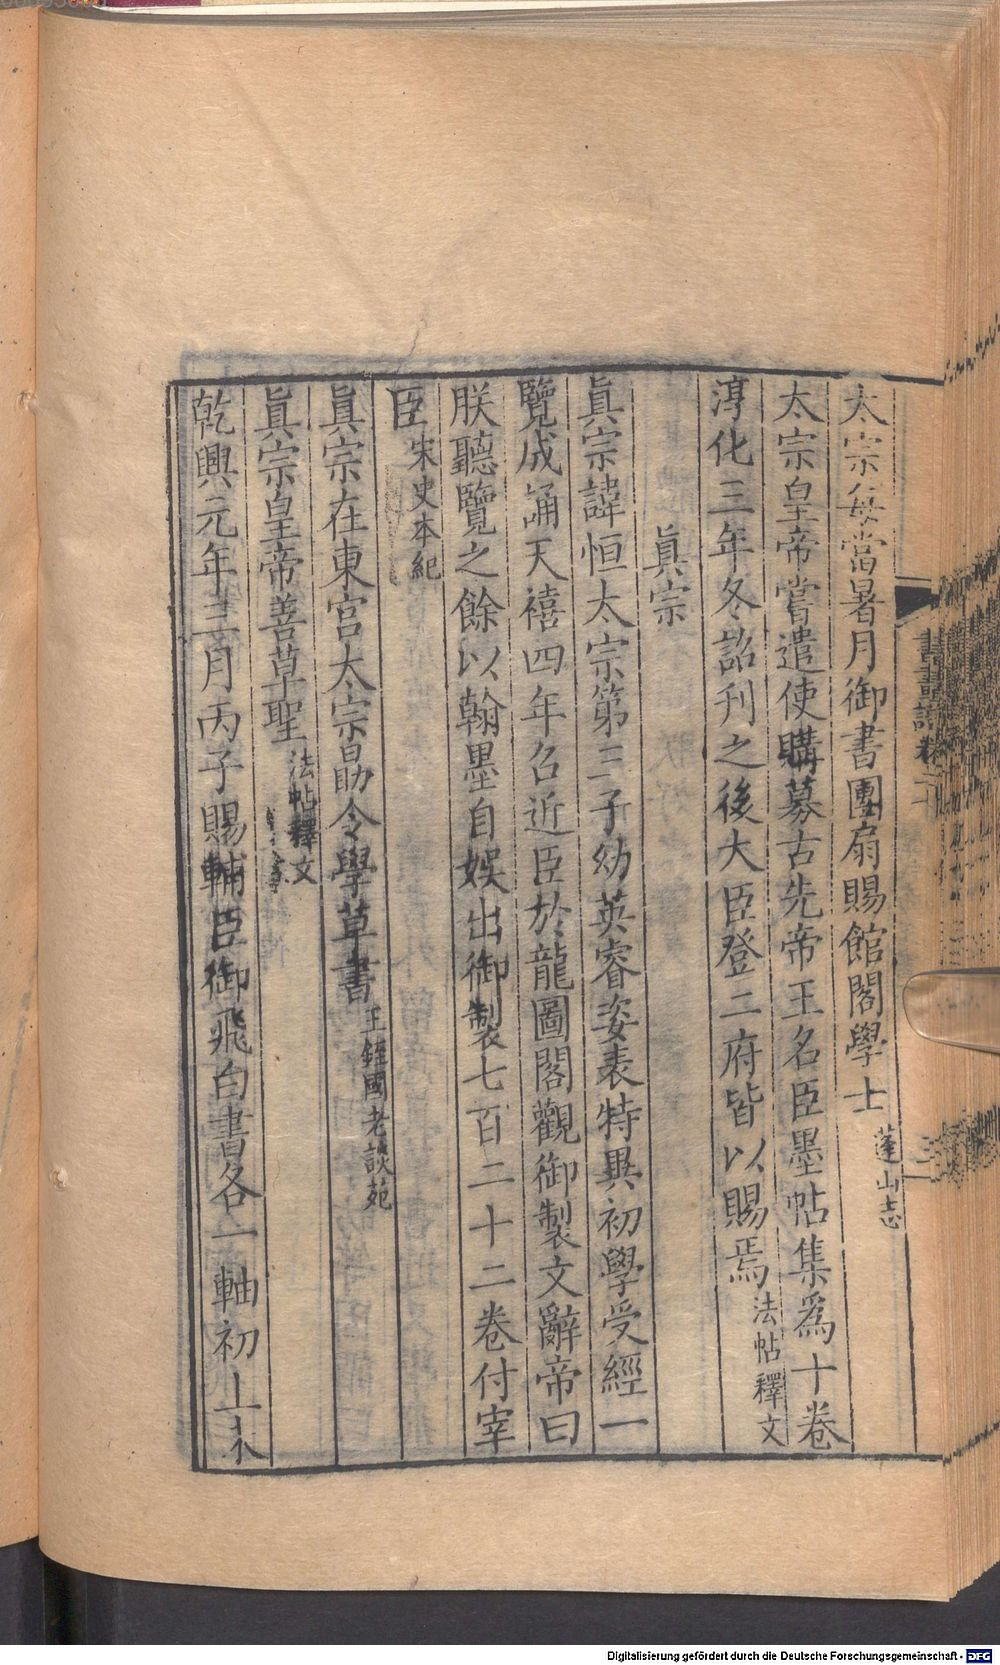 太宗每當暑月御書團扇賜館閣學士 蓬山志
太宗皇帝嘗遣使購募古先帝王名臣墨帖集爲十卷
淳化三年冬詔刊之後大臣登二府皆以賜焉 法帖釋文
眞宗
眞宗諱恒太宗第三子幼英睿姿表特異初學受經一
覽成誦天禧四年召近臣於龍圖閣觀御製文辭帝曰
朕聽覽之餘以翰墨自娛出御製七百二十二卷付宰
臣 宋史本紀
眞宗在東宮太宗勗令學草書 王鞏國老談苑
眞宗皇帝善草聖 法帖釋文
乾興元年三月丙子賜輔臣御飛白書各一軸初上未
書畫譜卷二十
Digitalisierung gefördert durch die Deutsche Forschungsgemeinschaft - DFG